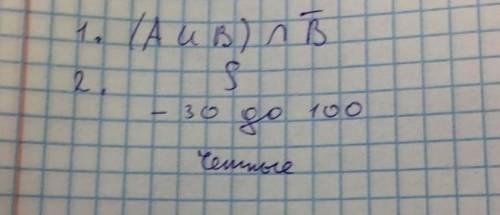 1. (A ∪ B) ∩ B̅
2. S
- 30 до 100
четные